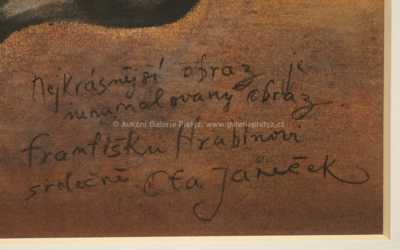 Nejkrásnější obraz je
nenamalovaný obraz
© Aukční Galerie Platýz, www.galerieplatyz.cz
Františku Hrabinovi
srdečně Ota Janeček